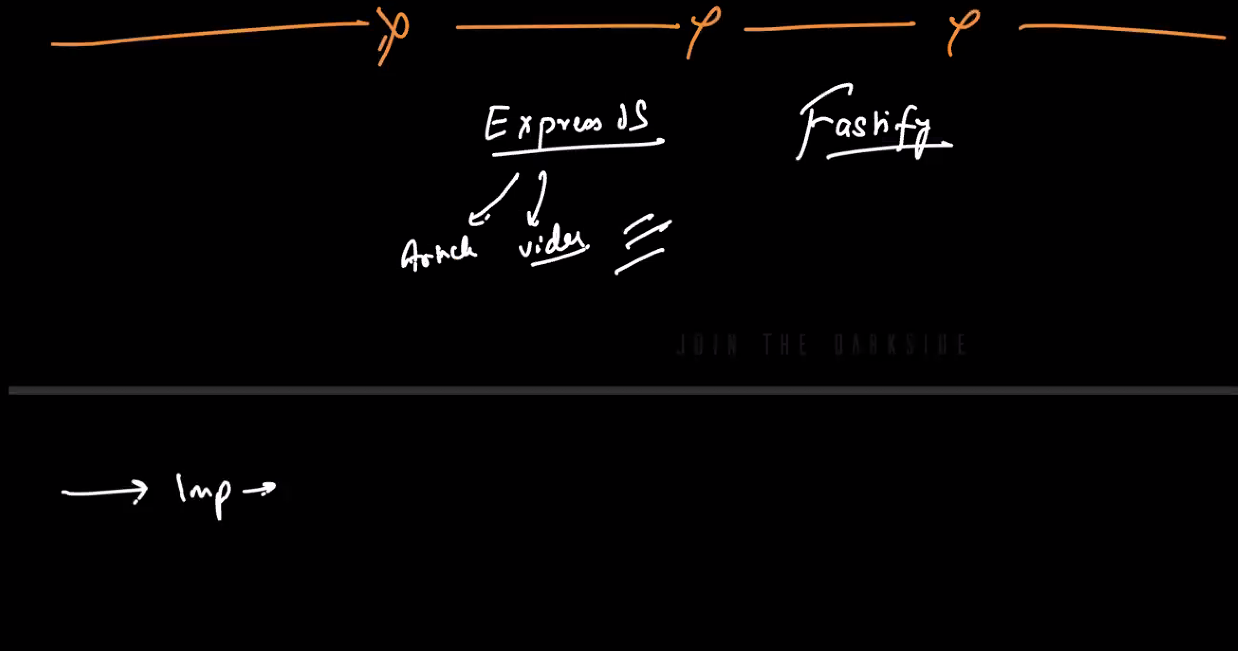 Express JS Fastify
Article video
JOIN THE DARKSIDE
Imp